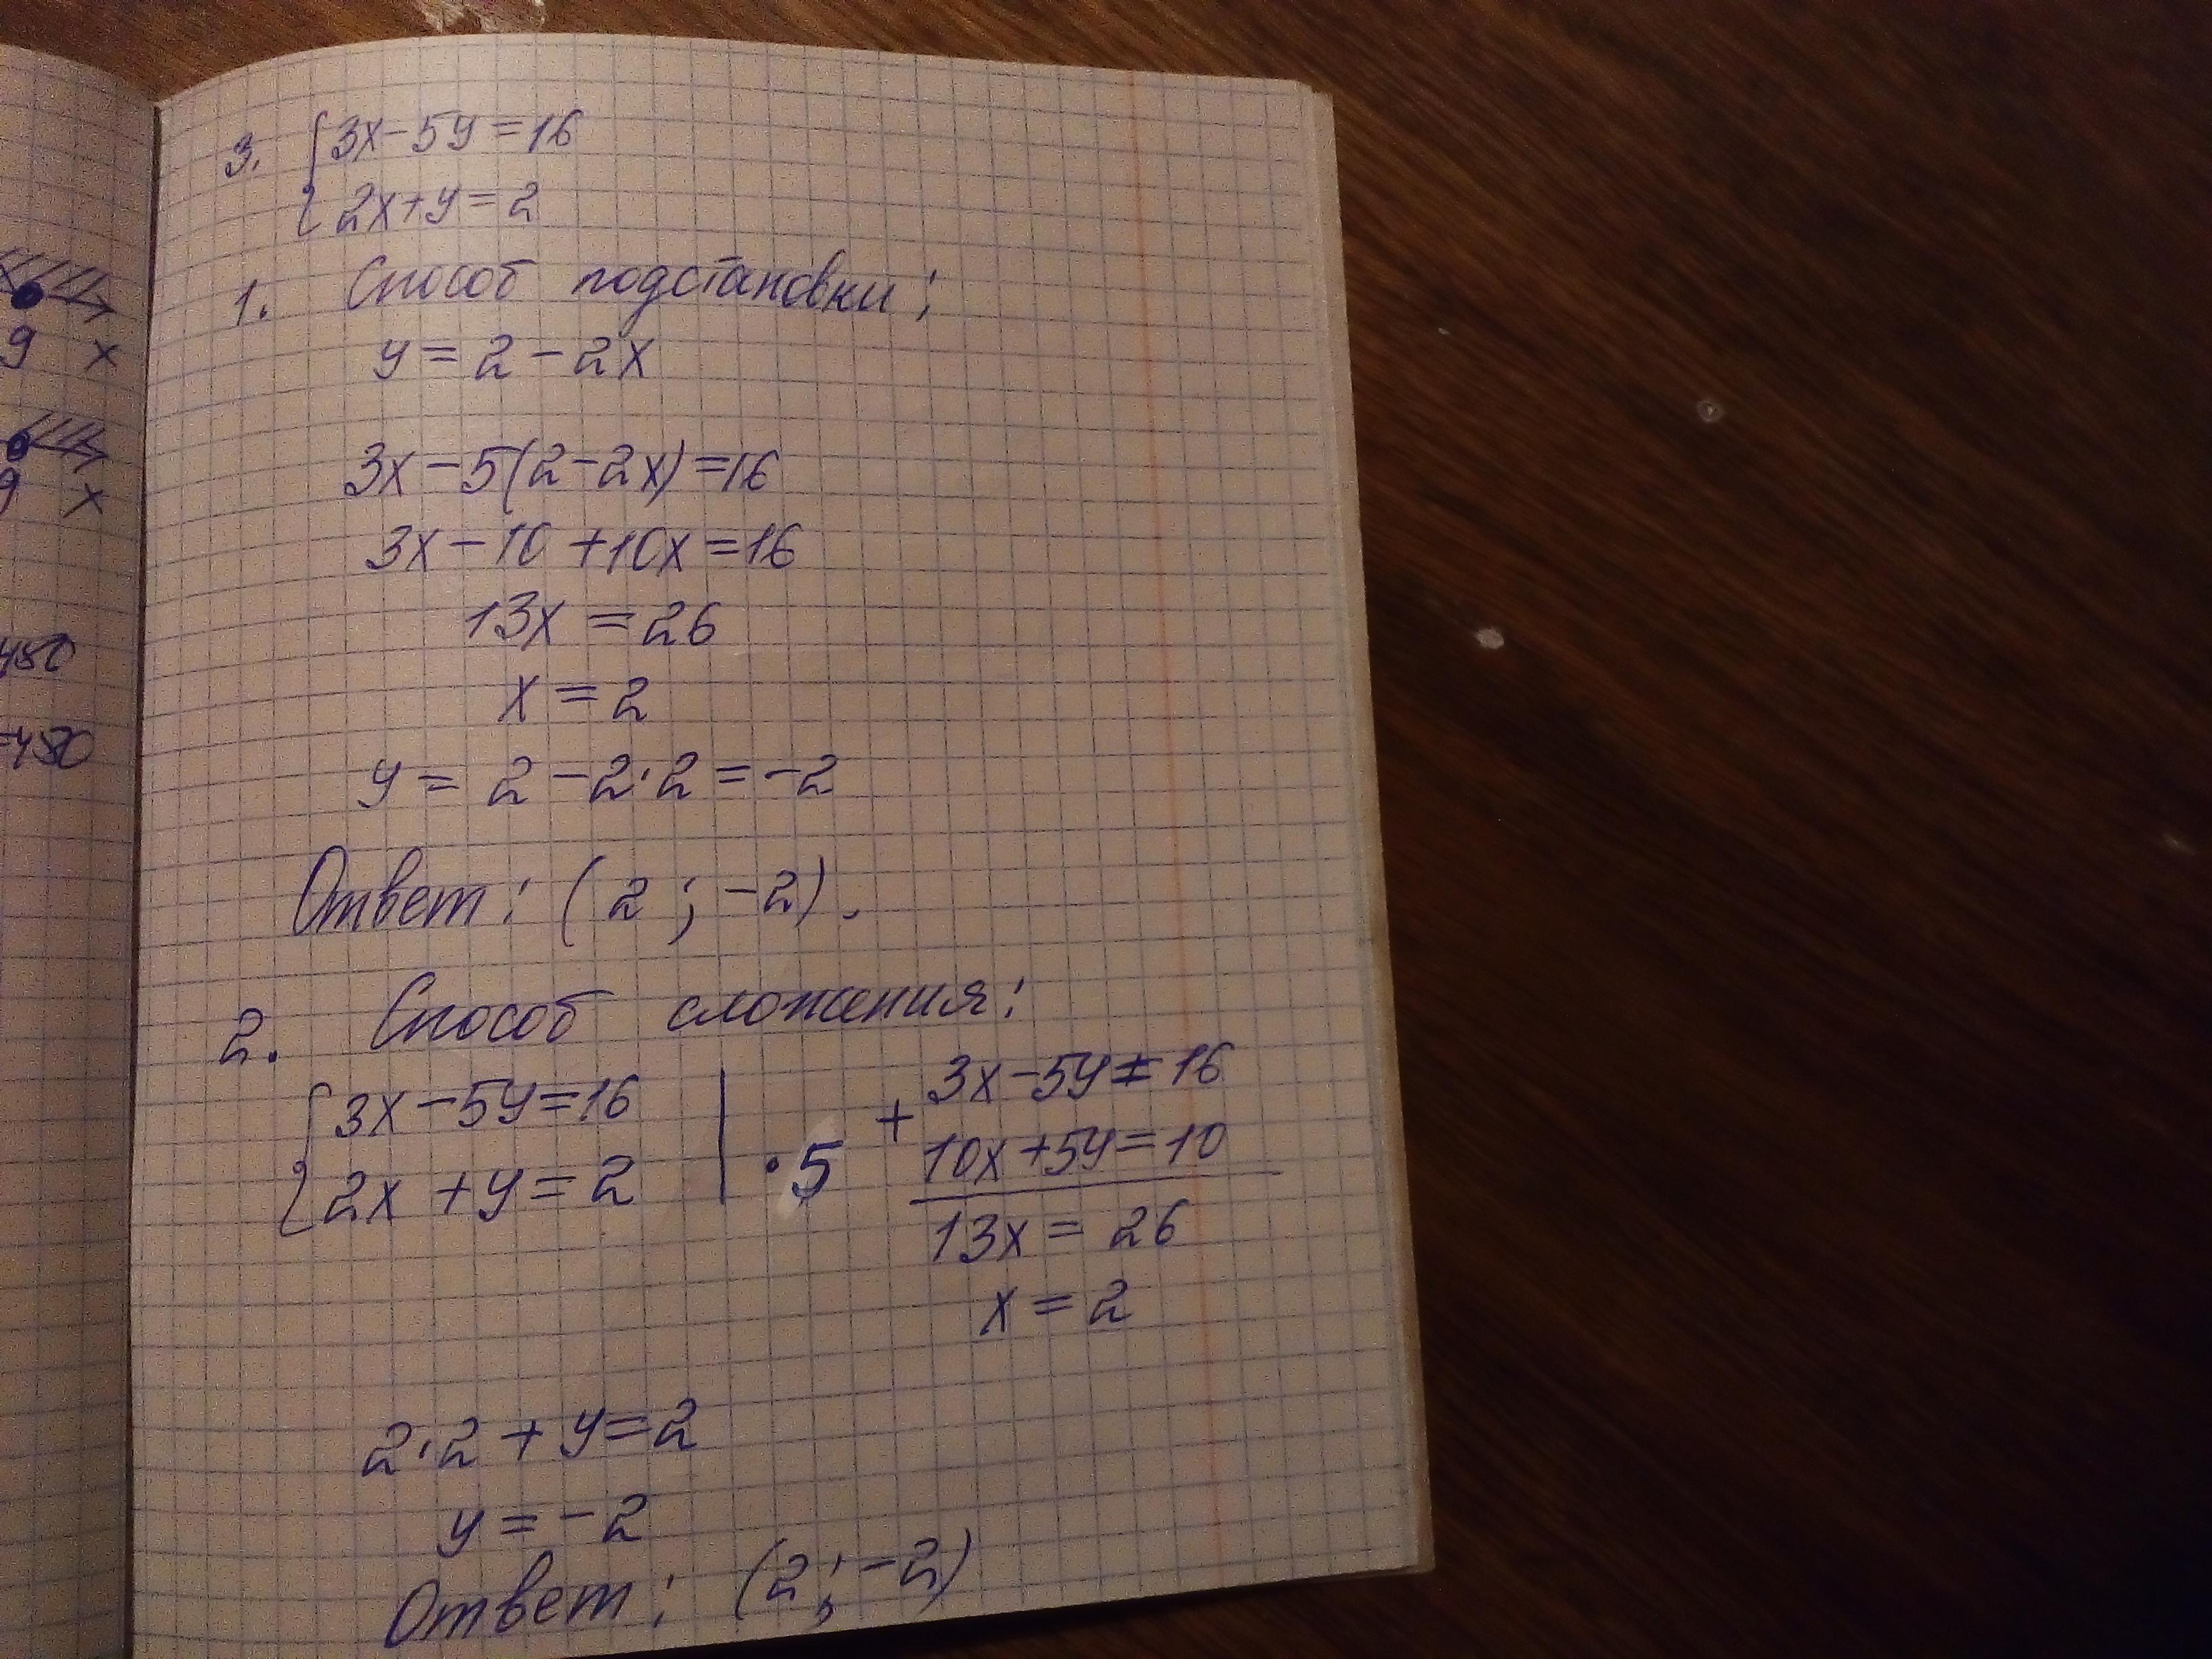 3. { 3x-5y=16
2x+y=2
1. Способ подстановки:
y=2-2x
3x-5(2-2x)=16
3x-10+10x=16
13x=26
x=2
y=2-2·2=-2
Ответ: (2;-2).
2. Способ сложения:
{ 3x-5y=16
2x+y=2 | ·5
+ 3x-5y=16
10x+5y=10
13x=26
x=2
2·2+y=2
y=-2
Ответ: (2;-2)
9 x
9 x
480
=480